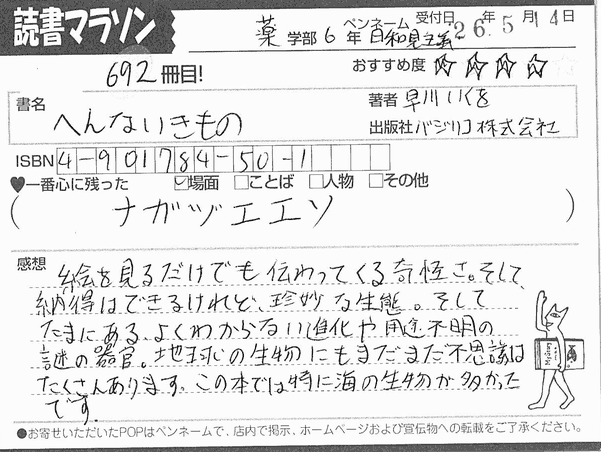 読書マラソン
薬 学部 6 年 ペンネーム 日和見主義 受付日 26.5月14日
692冊目!
おすすめ度 ☆☆☆☆
書名
へんないきもの
著者 早川いくを
出版社 バジリコ株式会社
ISBN 4-901784-50-1
♥一番心に残った ☑場面 □ことば □人物 □その他
( ナガヅエエソ )
感想
絵を見るだけでも伝わってくる奇怪さ。そして、
納得はできるけれど、珍妙な生態。そして
たまにある、よくわからない進化や用途不明の
謎の器官。地球の生物にもまだまだ不思議は
たくさんあります。この本では特に海の生物が多かった
です。
●お寄せいただいたPOPはペンネームで、店内で掲示、ホームページおよび宣伝物への転載をご了承ください。